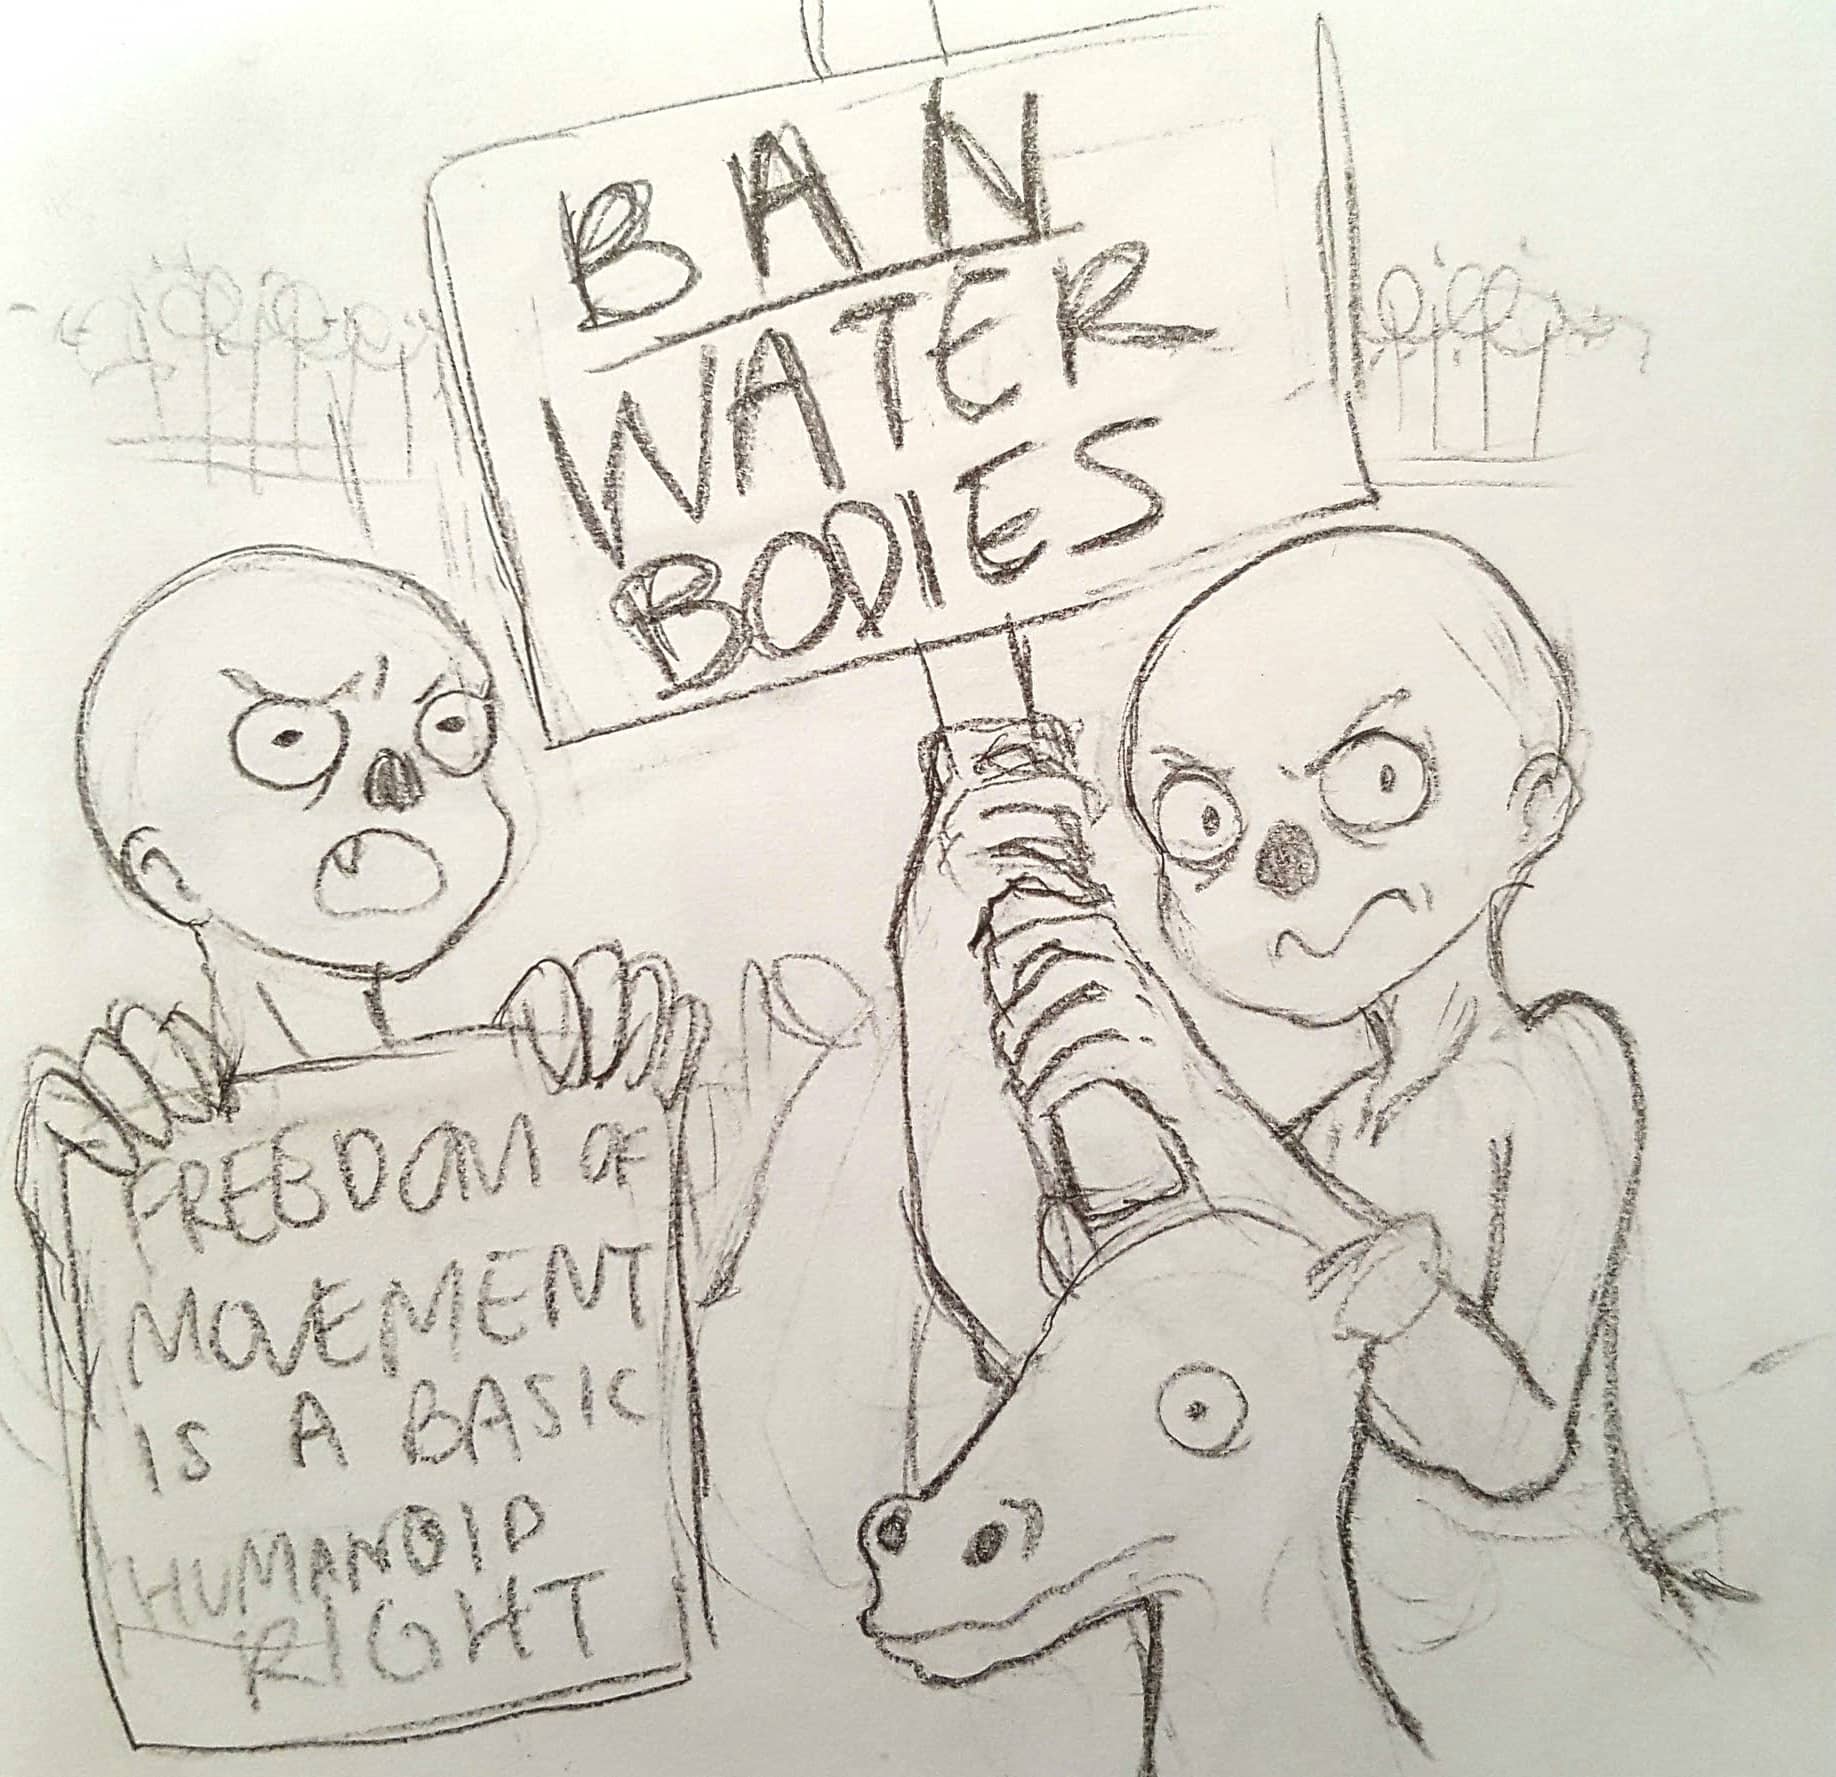 BAN
WATER
BODIES
FREEDOM OF
MOVEMENT
IS A BASIC
HUMANOID
RIGHT